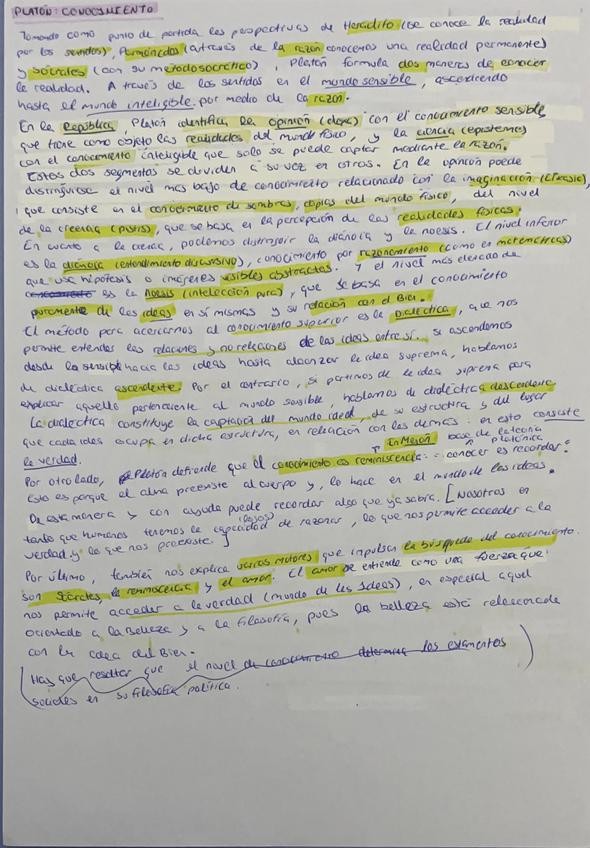 PLATÓN: CONOCIMIENTO
Tomando como punto de partida las perspectivas de Heráclito (se conoce la realidad
por los sentidos), Parménides (a través de la razón conocemos una realidad permanente)
y Sócrates (con su método socrático), Platón formula dos maneras de conocer
la realidad. A través de los sentidos en el mundo sensible, ascendiendo
hasta el mundo inteligible por medio de la razón.
En la República, Platón identifica la opinión (doxa) con el conocimiento sensible
que tiene como objeto las realidades del mundo físico, y la ciencia (episteme)
con el conocimiento inteligible que solo se puede captar mediante la razón.
Estos dos segmentos se dividen a su vez en otros. En la opinión puede
distinguirse el nivel más bajo de conocimiento relacionado con la imaginación (Eikasia),
que consiste en el conocimiento de sombras, copias del mundo físico, del nivel
de la creencia (pistis), que se basa en la percepción de las realidades físicas.
En cuanto a la ciencia, podemos distinguir la diánoia y la noesis. El nivel inferior
es la diánoia (entendimiento discursivo), conocimiento por razonamiento (como es matemáticas)
que usa hipótesis o imágenes visibles abstractas. Y el nivel más elevado de
es la Noesis (intelección pura), que se basa en el conocimiento
puramente de las ideas en sí mismas y su relación con el Bien.
El método para acercarnos al conocimiento superior es la Dialéctica, que nos
permite entender las relaciones y no relaciones de las ideas entre sí. Si ascendemos
desde lo sensible hacia las ideas hasta alcanzar la idea suprema, hablamos
de dialéctica ascendente. Por el contrario, si partimos de la idea suprema para
explicar aquello perteneciente al mundo sensible, hablamos de dialéctica descendente.
La dialéctica constituye la captación del mundo ideal, de su estructura y del lugar
que cada idea ocupa en dicha estructura, en relación con las demás: en esto consiste
la verdad.
En Menón base de la teoría platónica
Por otro lado, Platón defiende que el conocimiento es reminiscencia: conocer es recordar.
Esto es porque el alma preexiste al cuerpo y, lo hace en el mundo de las ideas.
De esta manera y con ayuda puede recordar algo que ya sabía. [Nosotros en
tanto que humanos tenemos la capacidad de razonar, lo que nos permite acceder a la
verdad y lo que nos preexiste.]
Por último, también nos explica varios motores que impulsan la búsqueda del conocimiento.
son Sócrates, la reminiscencia y el amor. El amor se entiende como una fuerza que
nos permite acceder a la verdad (mundo de las Ideas), en especial aquel
orientado a la Belleza y a la Filosofía, pues la belleza está relacionada
con la idea del Bien.
(Hay que resaltar que el nivel de conocimiento determina los estamentos
sociales en su filosofía política.)